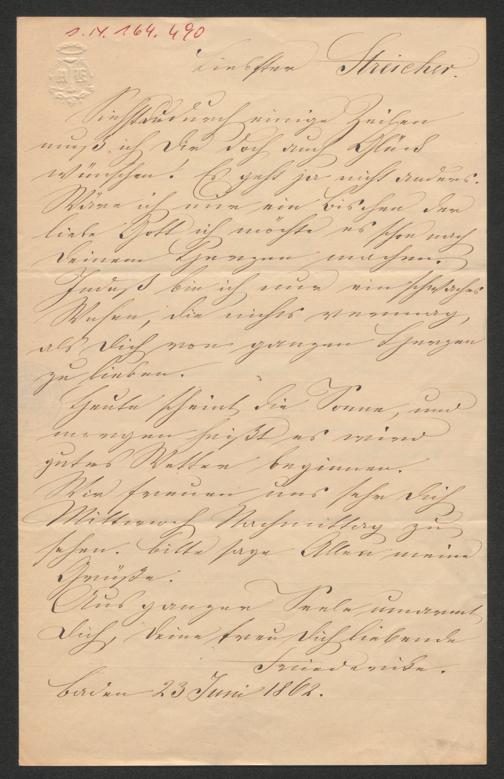 I.N. 164.490
Liebster Streicher.
Siehst du durch einige Zeilen
muß ich Dir doch auch Glück
wünschen! Es geht ja nicht anders.
Wäre ich nur ein bischen der
liebe Gott ich möchte es schon nach
Deinem Herzen machen.
Indeß bin ich nur ein schwaches
Wesen, die nichts vermag,
als Dich von ganzen Herzen
zu lieben.
Heute scheint die Sonne, und
morgen heißt es wird
gutes Wetter beginnen.
Wir freuen uns sehr Dich
Mittwoch Nachmittag zu
sehen. Bitte sage Allen meine
Grüße.
Aus ganzer Seele umarmt
Dich, Deine treu Dich liebende
Friederike.
Baden 23 Juni 1862.